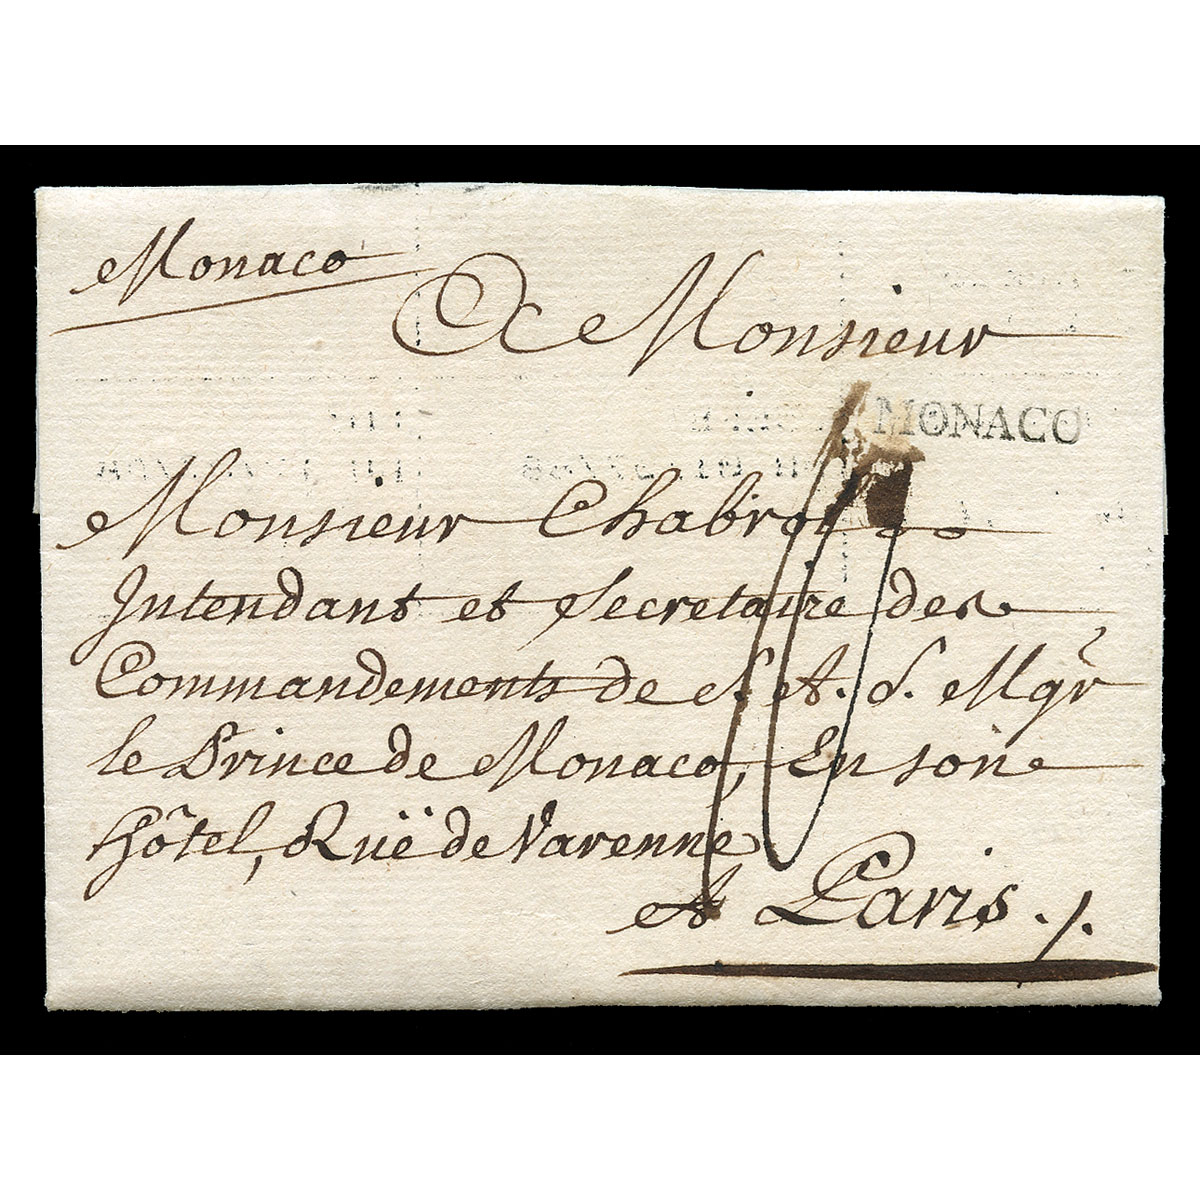 Monaco
A Monsieur
MONACO
Monsieur Chabrol
Intendant et Secretaire des
Commandements de S. A. S. Mgr
le Prince de Monaco, En son
Hôtel, Ruë de Varenne
10
A Paris ./.